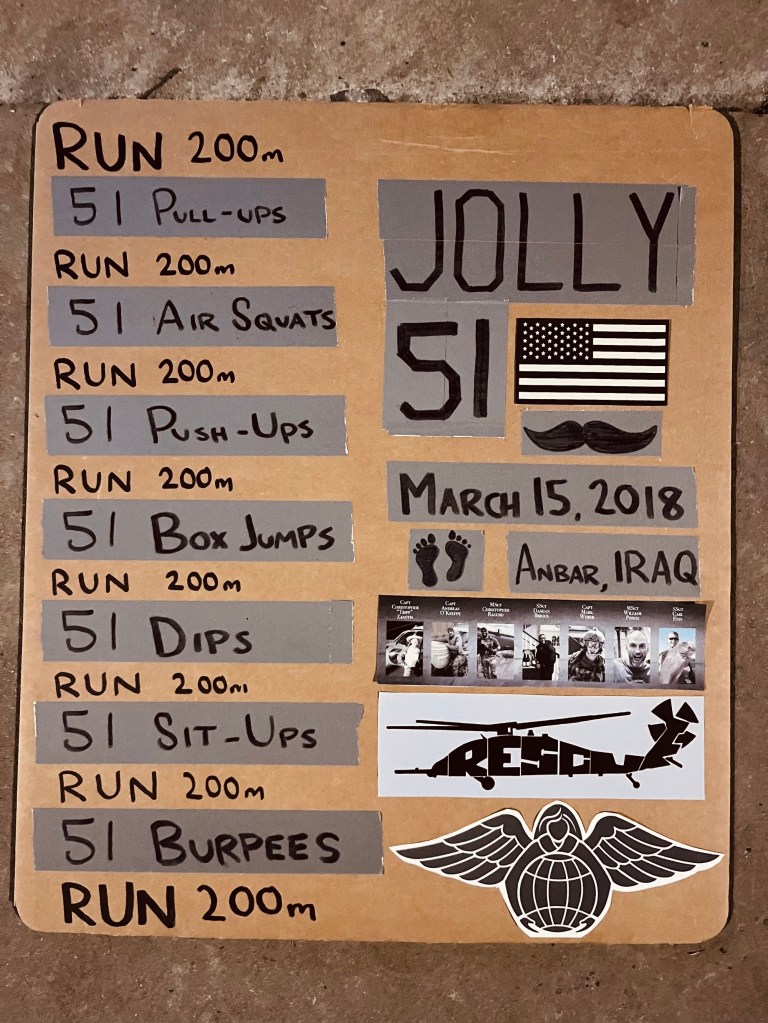 RUN 200m
51 PULL-UPS
RUN 200m
51 AIR SQUATS
RUN 200m
51 PUSH-UPS
RUN 200m
51 BOX JUMPS
RUN 200m
51 DIPS
RUN 200m
51 SIT-UPS
RUN 200m
51 BURPEES
RUN 200m
JOLLY
51
MARCH 15, 2018
ANBAR, IRAQ
CAPT
CHRISTOPHER
"TRIPP"
ZANETIS
CAPT
ANDREAS
O'KEEFFE
MSGT
CHRISTOPHER
RAGUSO
SSGT
DASHAN
BRIGGS
CAPT
MARK
WEBER
MSGT
WILLIAM
POSCH
SSGT
CARL
ENIS
RESCUE